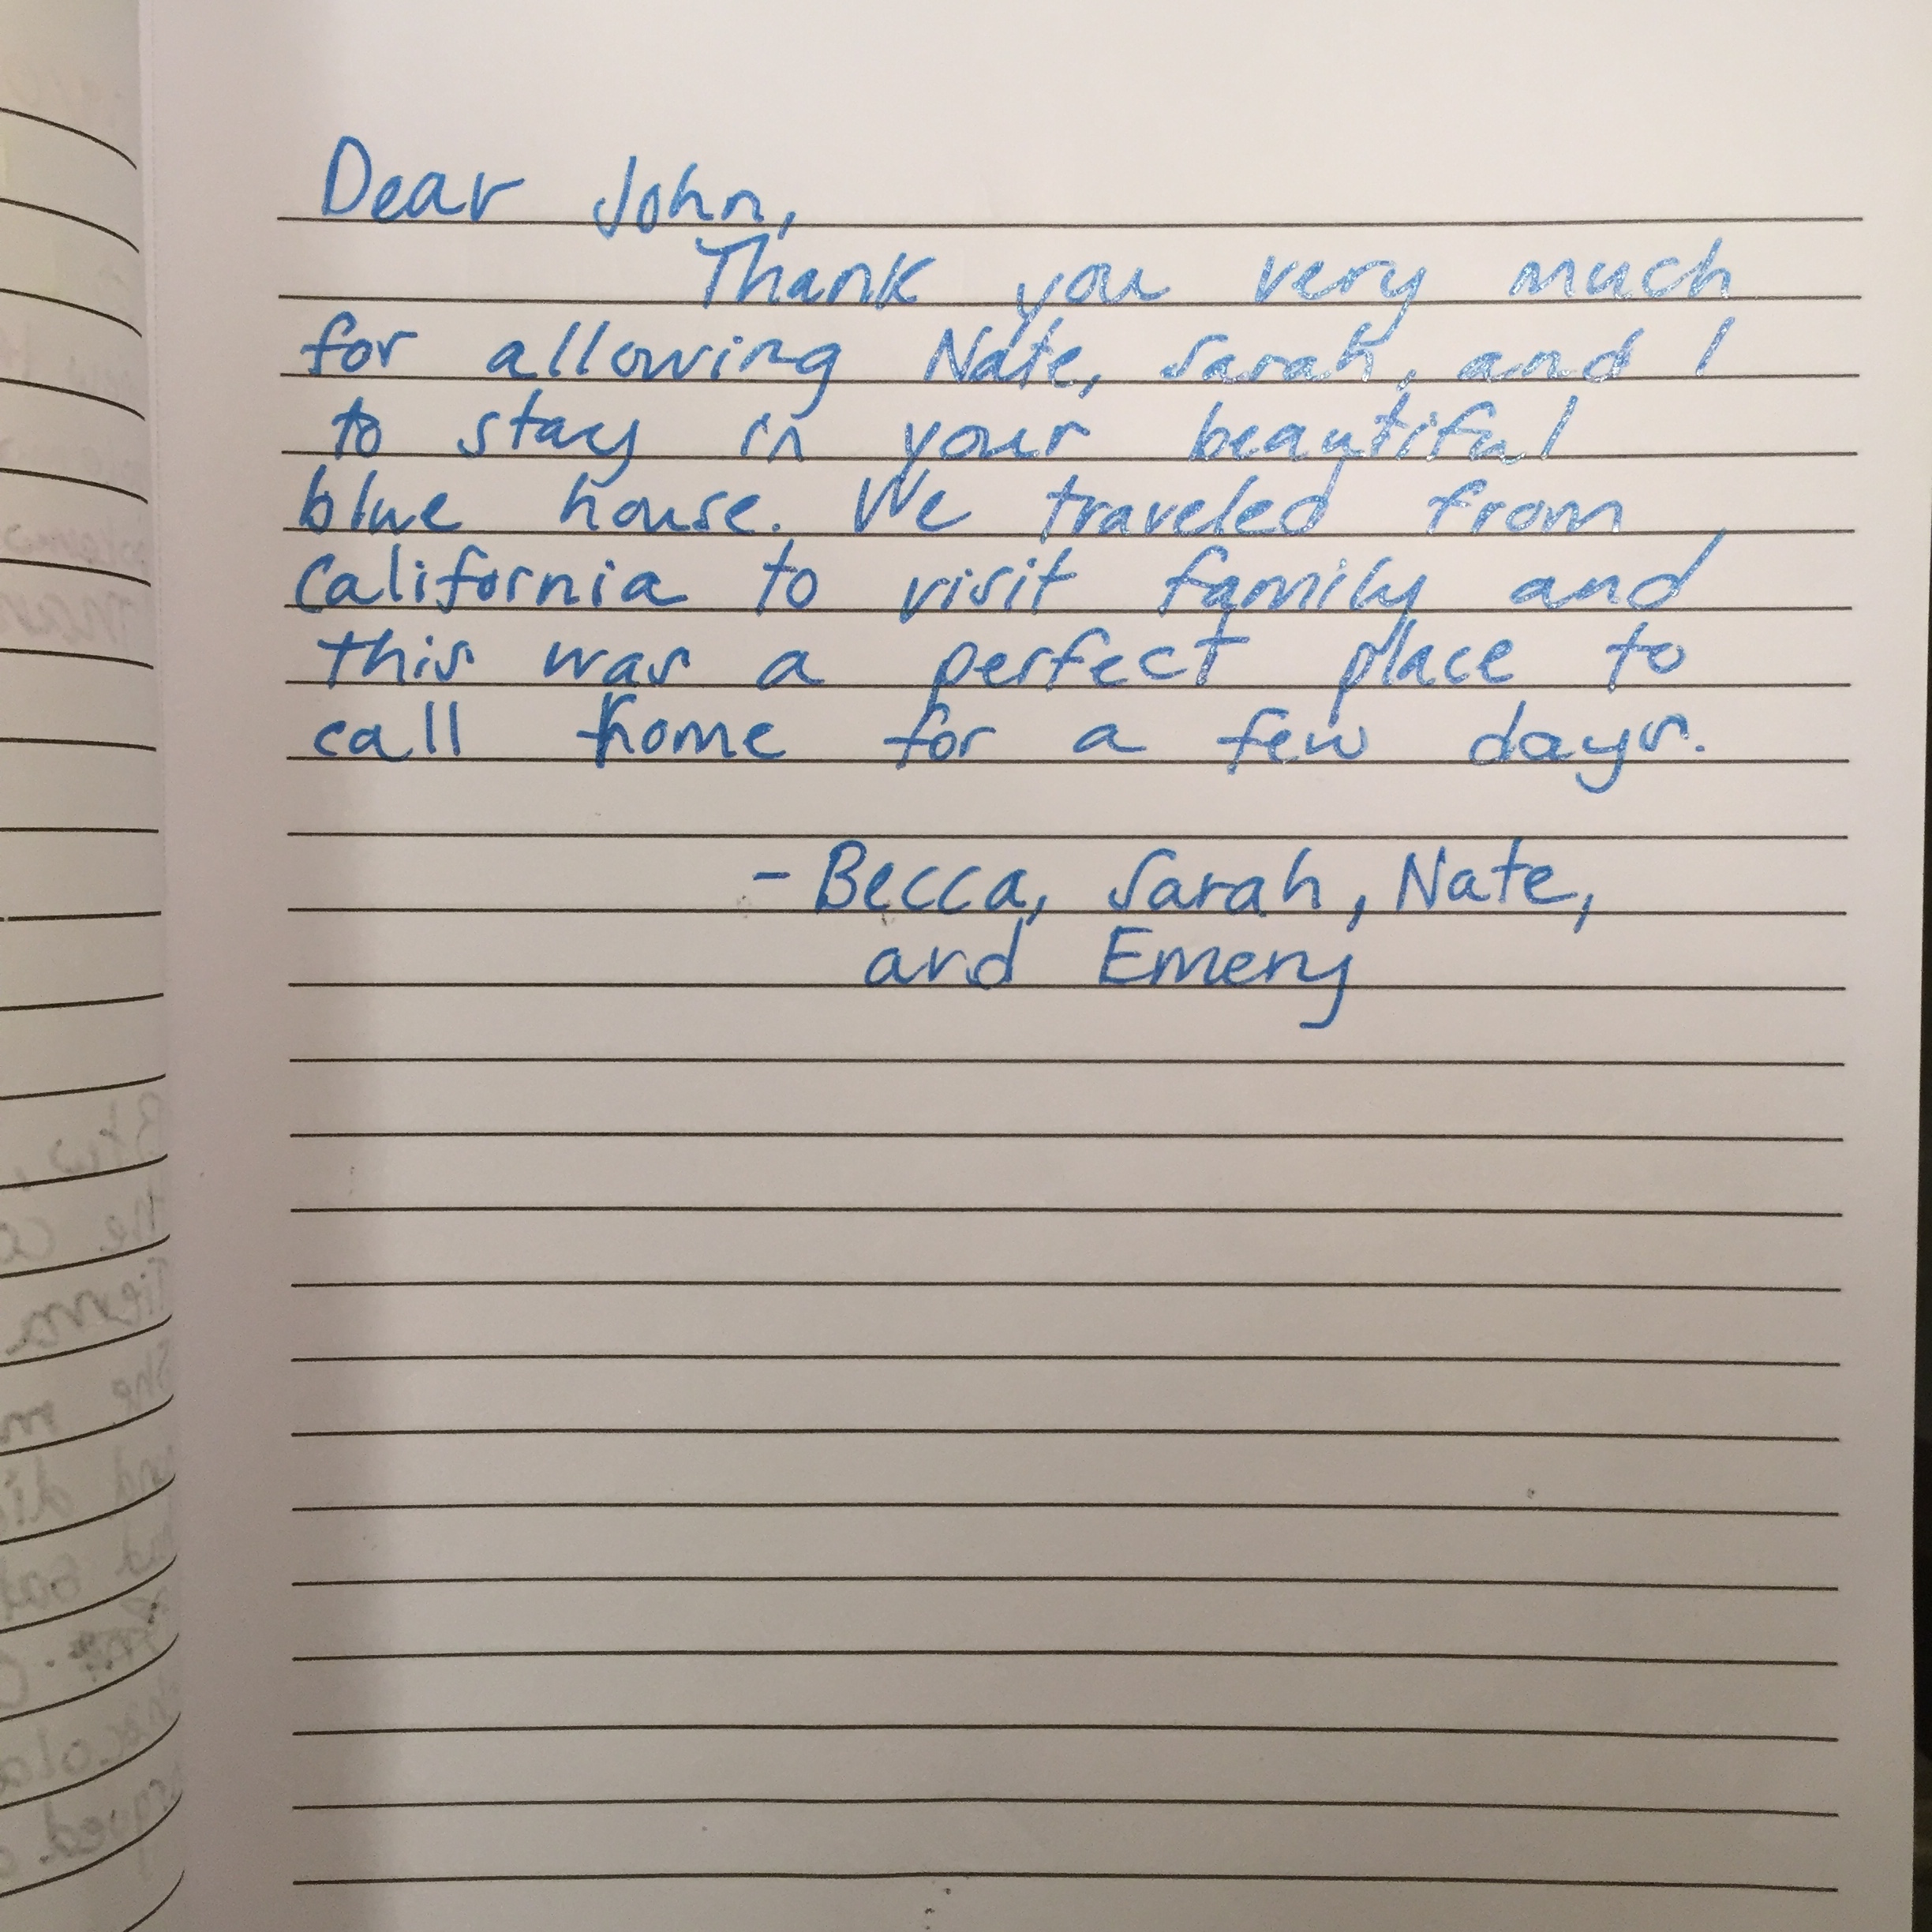 Dear John,
Thank you very much
for allowing Nate, Sarah, and I
to stay in your beautiful
blue house. We traveled from
California to visit family and
this was a perfect place to
call home for a few days.
- Becca, Sarah, Nate,
and Emery